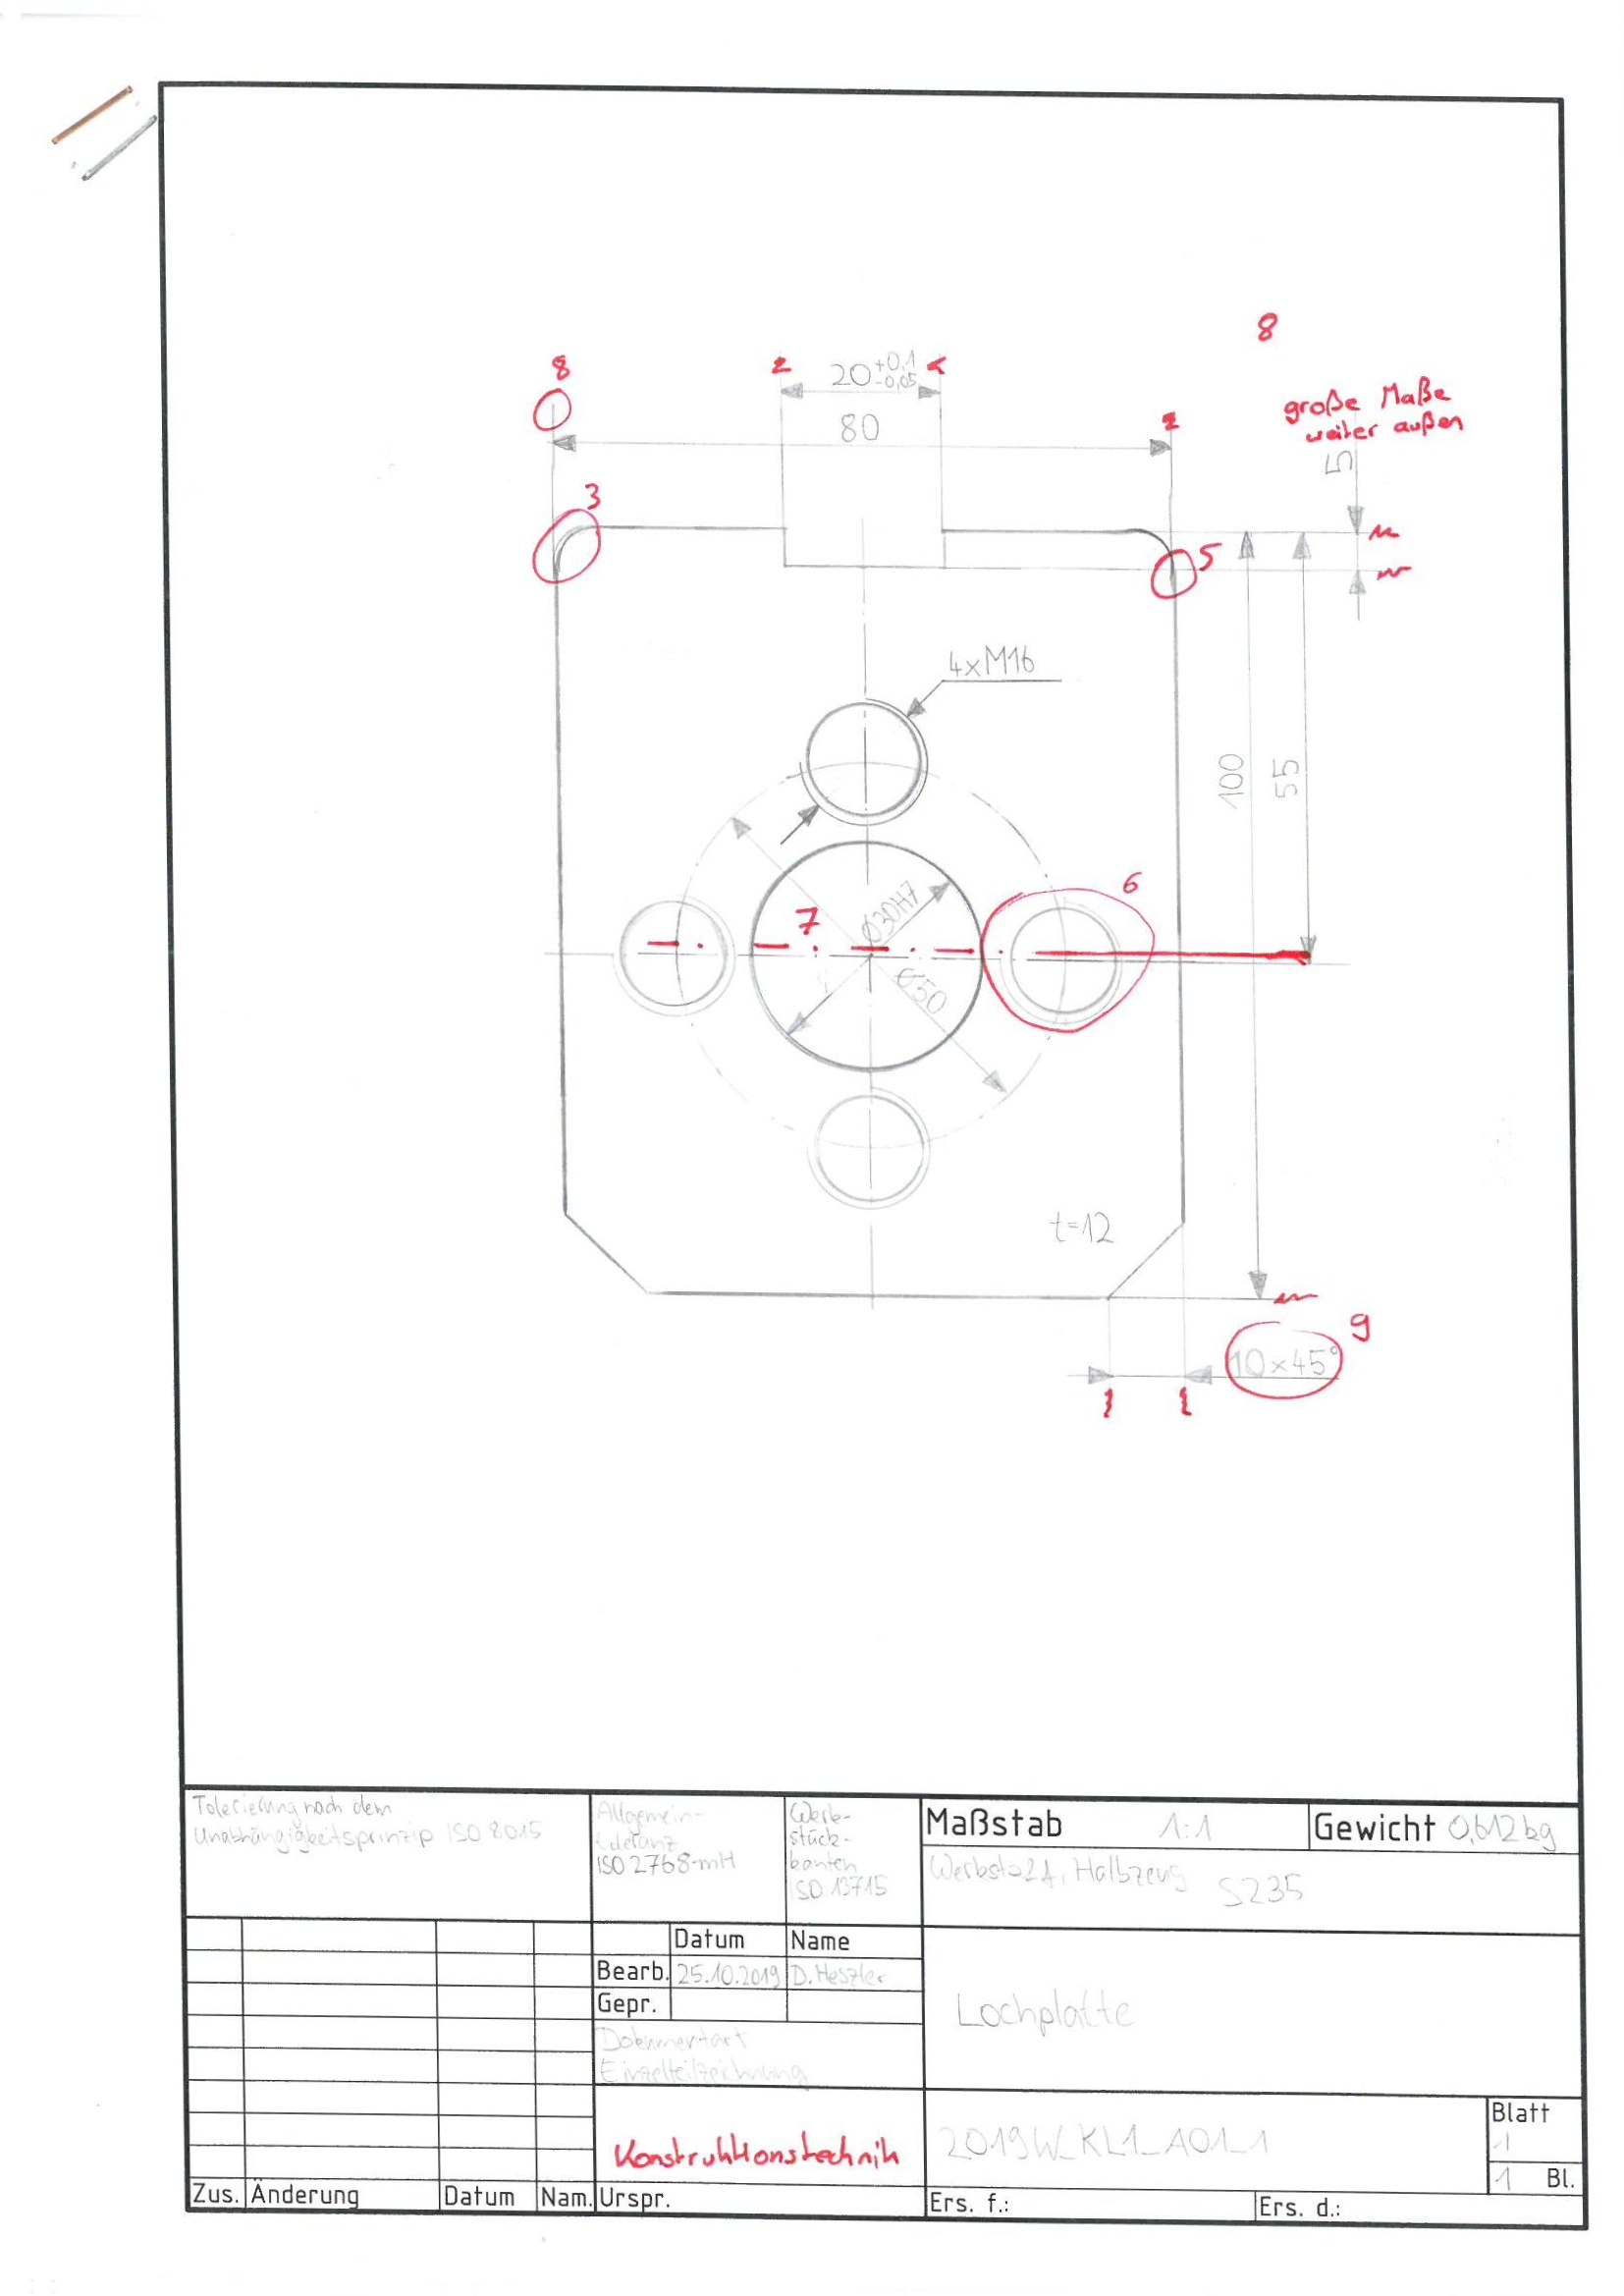 8
8
2
20 +0,1 -0,05
2
große Maße
weiter außen
80
2
5
3
5
4xM16
100
55
6
7
Ø30H7
Ø50
t=12
9
10×45°
1 1
Tolerierung nach dem
Unabhängigkeitsprinzip ISO 8015
Allgemein-
toleranz
ISO 2768-mH
Werk-
stück-
kanten
ISO 13715
Maßstab 1:1
Gewicht 0,612kg
Werkstoff, Halbzeug S235
Datum Name
Bearb. 25.10.2019 D. Heszler
Gepr.
Lochplatte
Dokumentart
Einzelteilzeichnung
Konstruktionstechnik
2019W_KL1_A01_1
Blatt
1
1 Bl.
Zus. Änderung Datum Nam. Urspr. Ers. f.: Ers. d.: